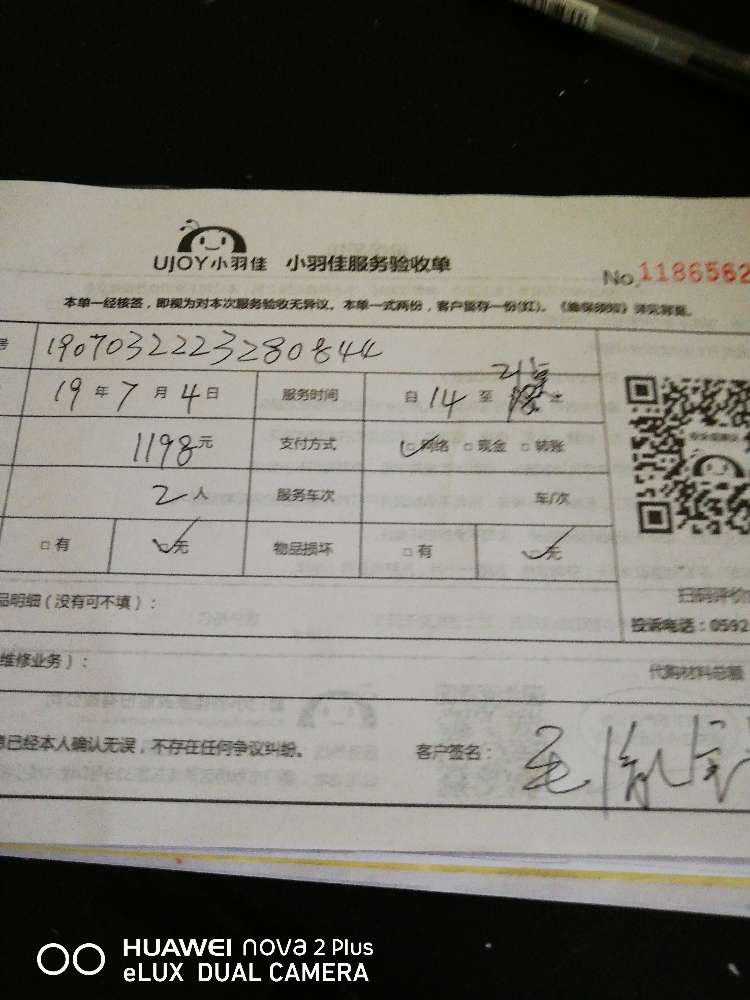 UJOY小羽佳 小羽佳服务验收单
No.1186562
本单一经核签，即视为对本次服务验收无异议。本单一式两份，客户留存一份(红)。《维保须知》详见背面。
号 1907032223280844
19年7月4日 服务时间 自14至
1198元 支付方式 网络 □现金 □转账
2人 服务车次 车/次
□有 无 物品损坏 □有 无
品明细（没有可不填）：
扫码评价
投诉电话：0592
维修业务）：
代购材料总额
息已经本人确认无误，不存在任何争议纠纷。 客户签名：毛
HUAWEI nova 2 Plus
eLUX DUAL CAMERA